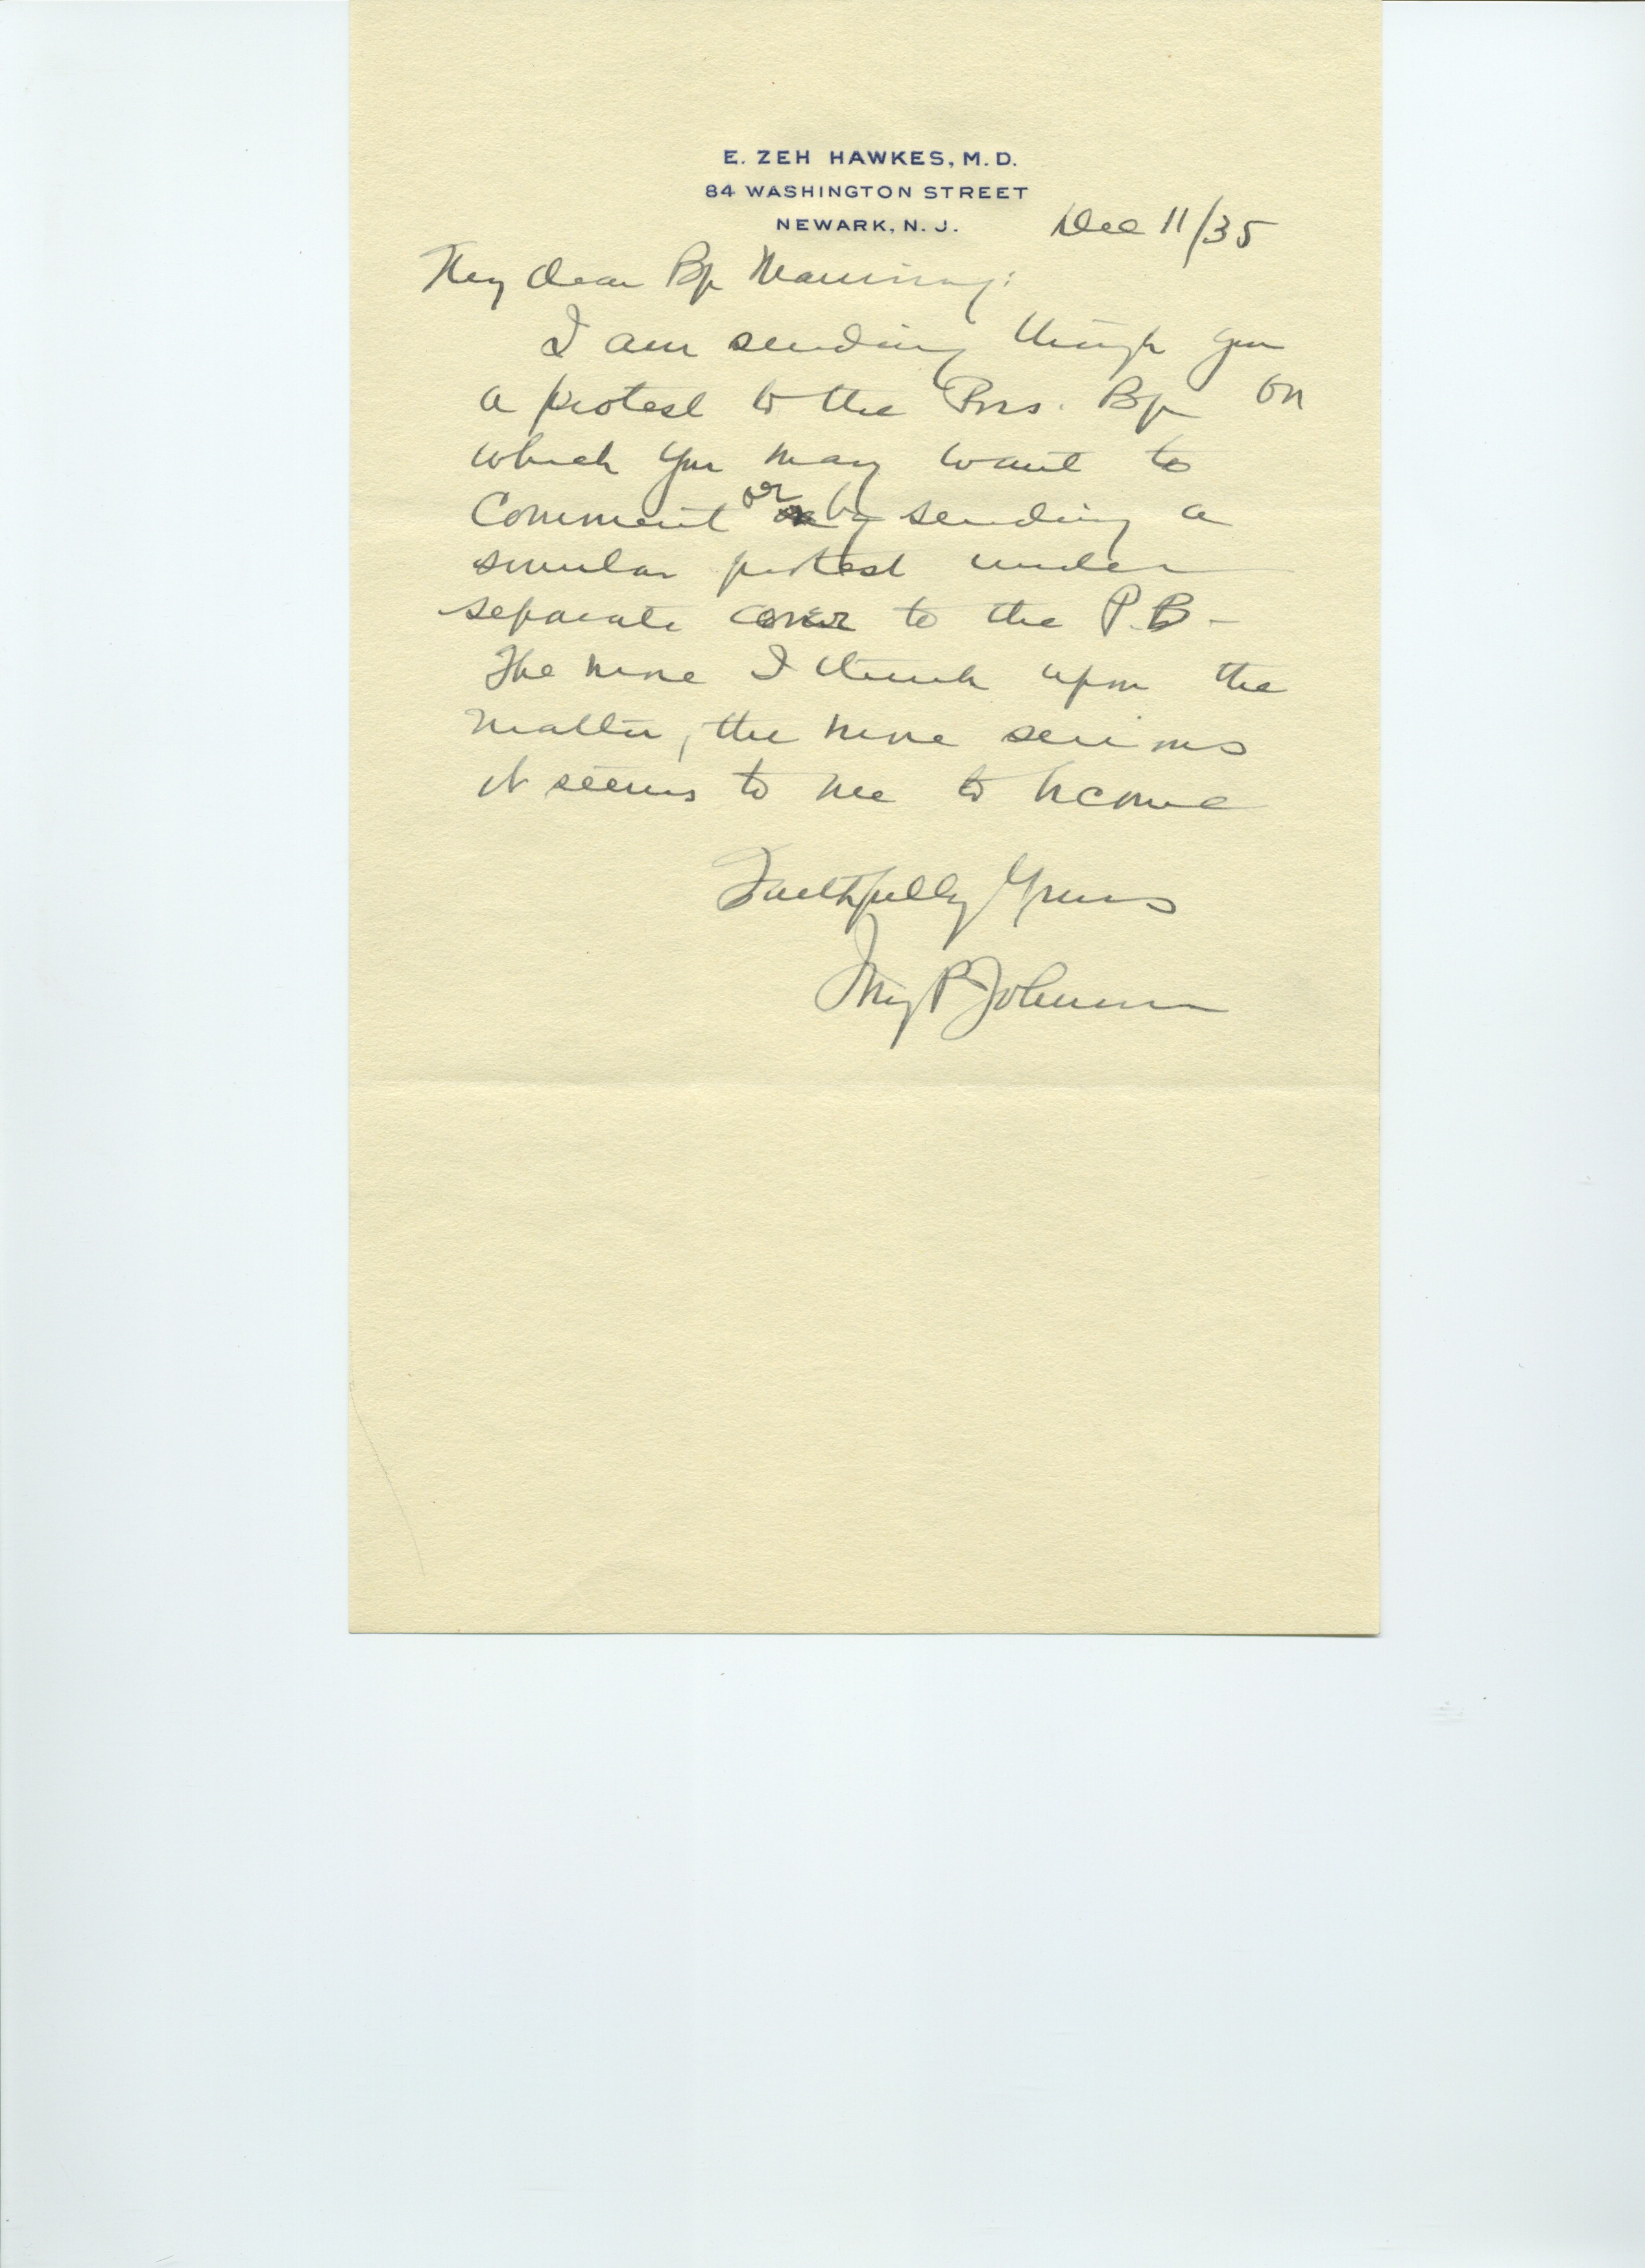 E. ZEH HAWKES, M. D.
84 WASHINGTON STREET
NEWARK, N. J.
Dec 11/35
My dear Bp Manning:
I am sending through you
a protest to the Pres. Bp on
which you may want to
comment or by sending a
similar protest under
separate cover to the P. B -
The more I think upon the
matter, the more serious
it seems to me to become
Faithfully Yours
Irving P Johnson